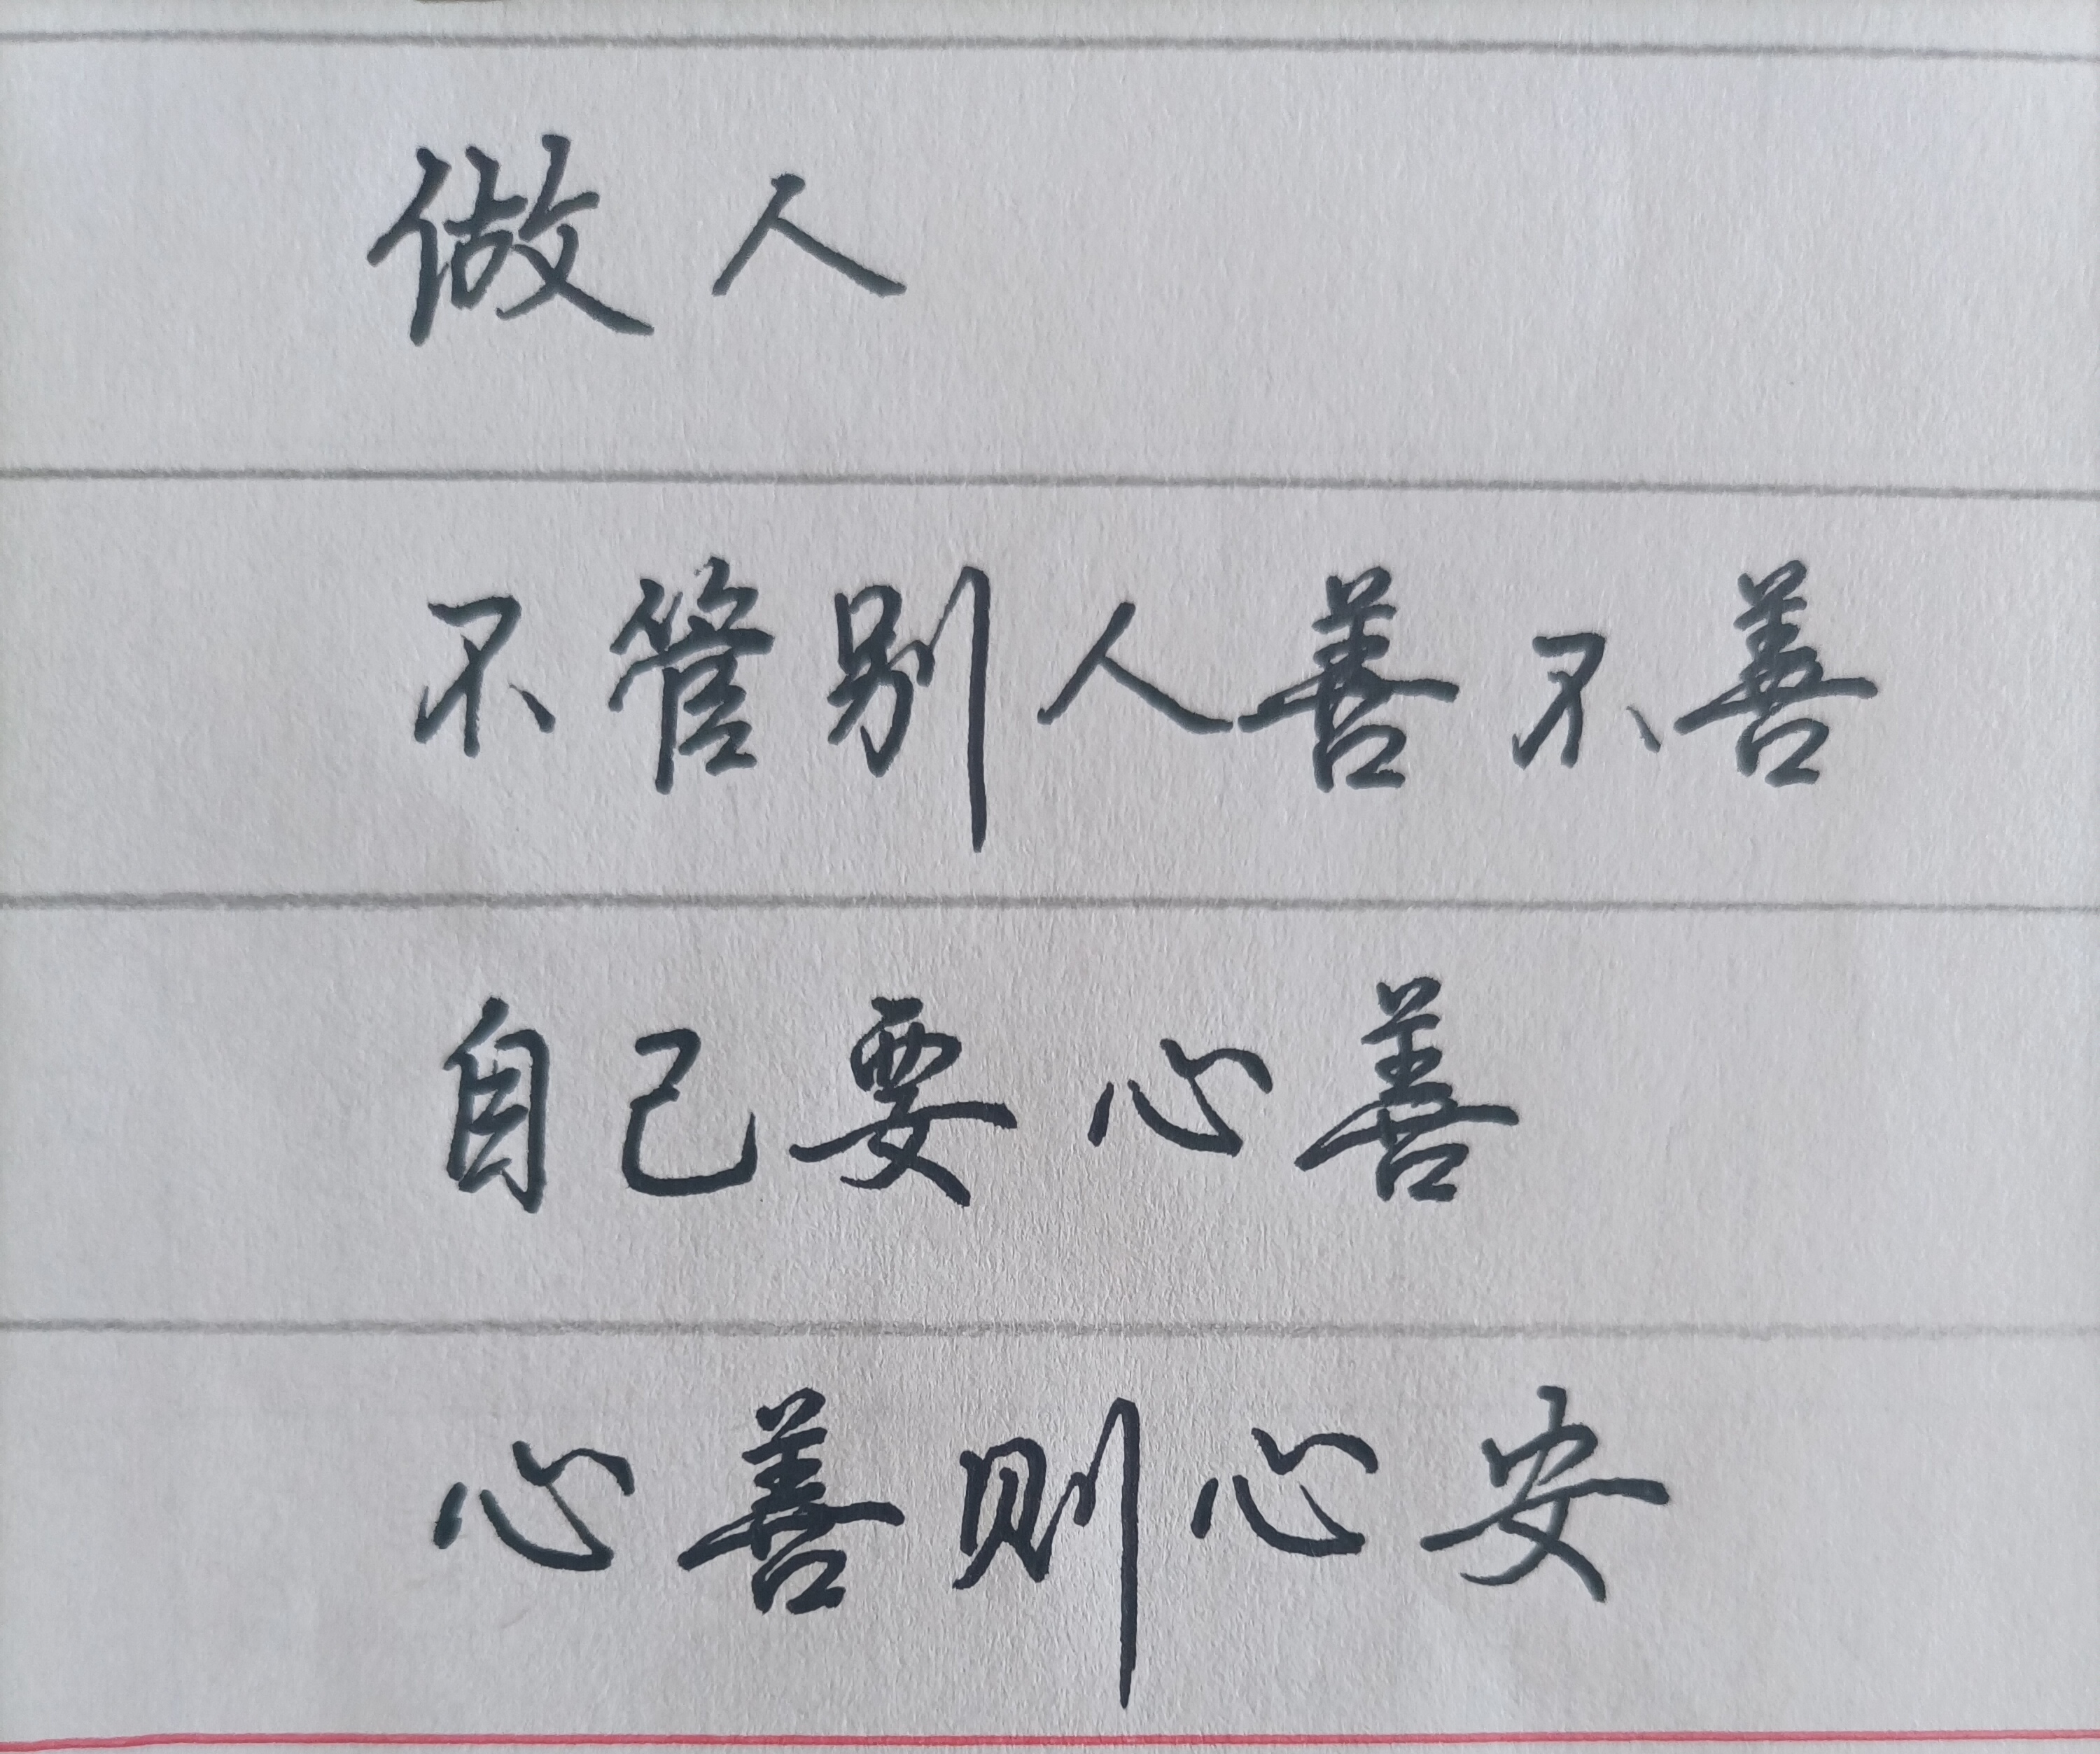 做人
不管别人善不善
自己要心善
心善则心安